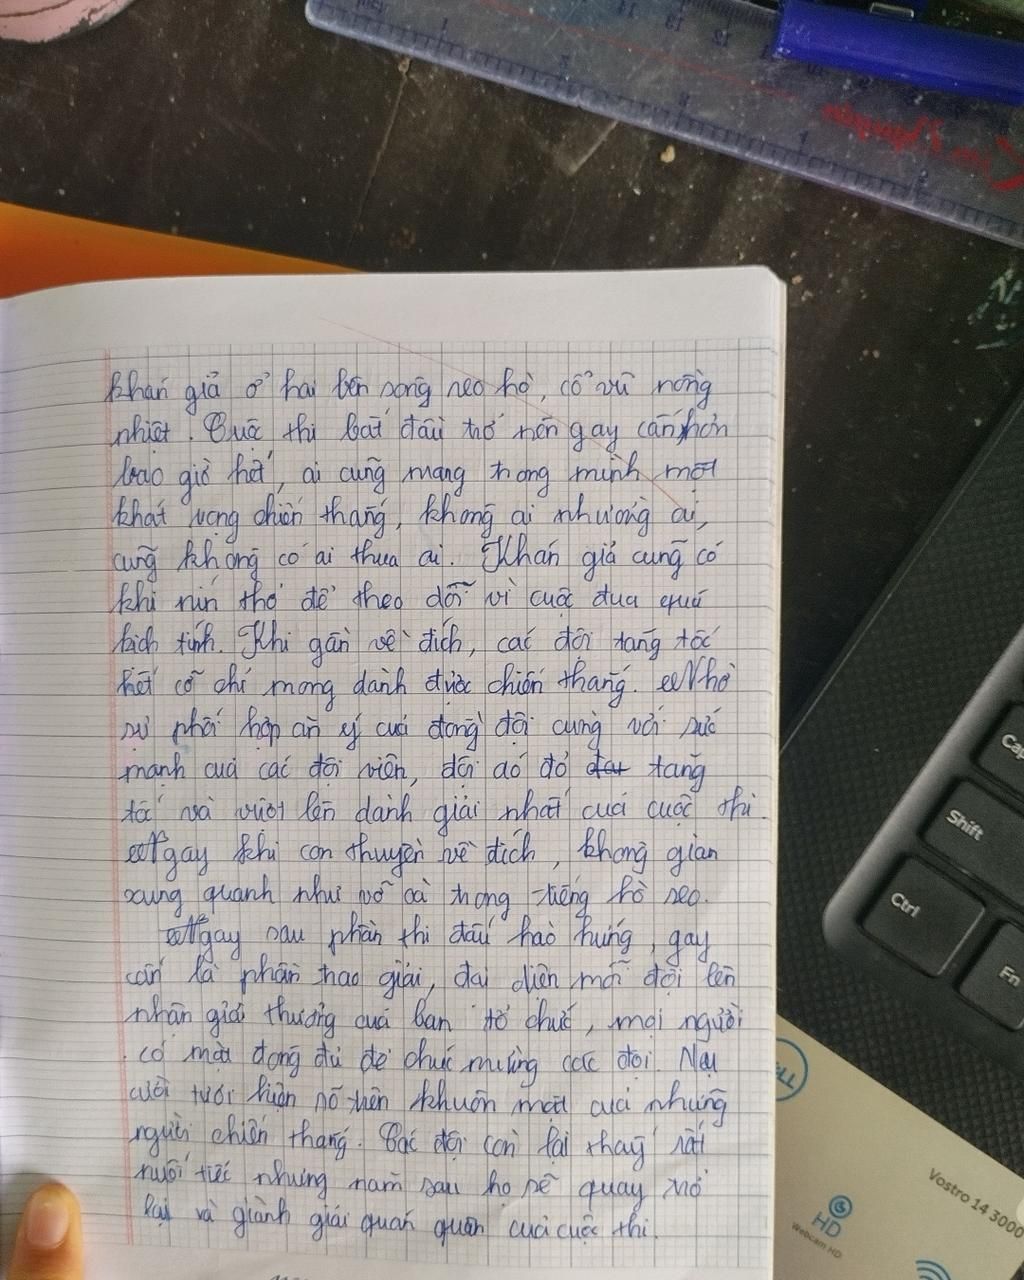 khán giả ở hai bên sông reo hò, cổ vũ nồng
nhiệt. Cuộc thi bắt đầu trở nên gay cấn hơn
bao giờ hết, ai cũng mang trong mình một
khát vọng chiến thắng, không ai nhường ai,
cũng không có ai thua ai. Khán giả cũng có
khi nín thở để theo dõi vì cuộc đua quá
kịch tính. Khi gần về đích, các đội tăng tốc
hết cỡ chỉ mong dành được chiến thắng. Nhờ
sự phối hợp ăn ý của đồng đội cùng với sức
mạnh của các đội viên, đội áo đỏ tăng
tốc và vượt lên dành giải nhất của cuộc thi.
Ngay khi con thuyền về đích, không gian
xung quanh như vỡ oà trong tiếng hò reo.
Ngay sau phần thi đấu hào hứng, gay
cấn là phần trao giải, đại diện mỗi đội lên
nhận giải thưởng của ban tổ chức, mọi người
có mặt đông đủ để chúc mừng các đội. Nụ
cười tươi hiện rõ trên khuôn mặt của những
người chiến thắng. Các đội còn lại thấy rất
nuối tiếc nhưng năm sau họ sẽ quay trở
lại và giành giải quán quân của cuộc thi.
Shift
Ctrl
Fn
Vostro 14 3000
HD
Webcam HD